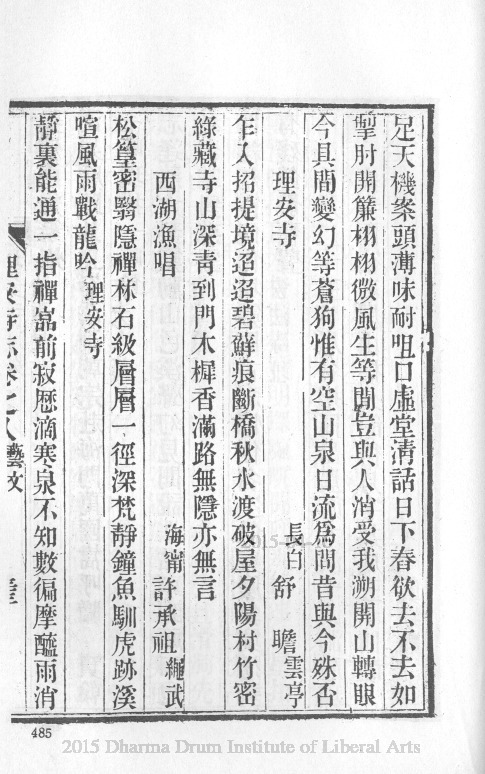 足天機案頭薄味耐咀口虛堂清話日下舂欲去不去如
掣肘開簾栩栩微風生等閒豈與人消受我溯開山轉眼
今具間變幻等蒼狗惟有空山泉日流為問昔與今殊否
理安寺 長白 舒 瞻雲亭
乍入招提境迢迢碧蘚痕斷橋秋水渡破屋夕陽村竹密
綠藏寺山深青到門木樨香滿路無隱亦無言
西湖漁唱 海甯 許承祖繩武
松篁密翳隱禪林石級層層一徑深梵靜鐘魚馴虎跡溪
喧風雨戰龍吟理安寺
靜裏能通一指禪窩前寂歷滴寒泉不知數徧摩醯雨消
理安寺志卷之八 藝文
485
2015 Dharma Drum Institute of Liberal Arts